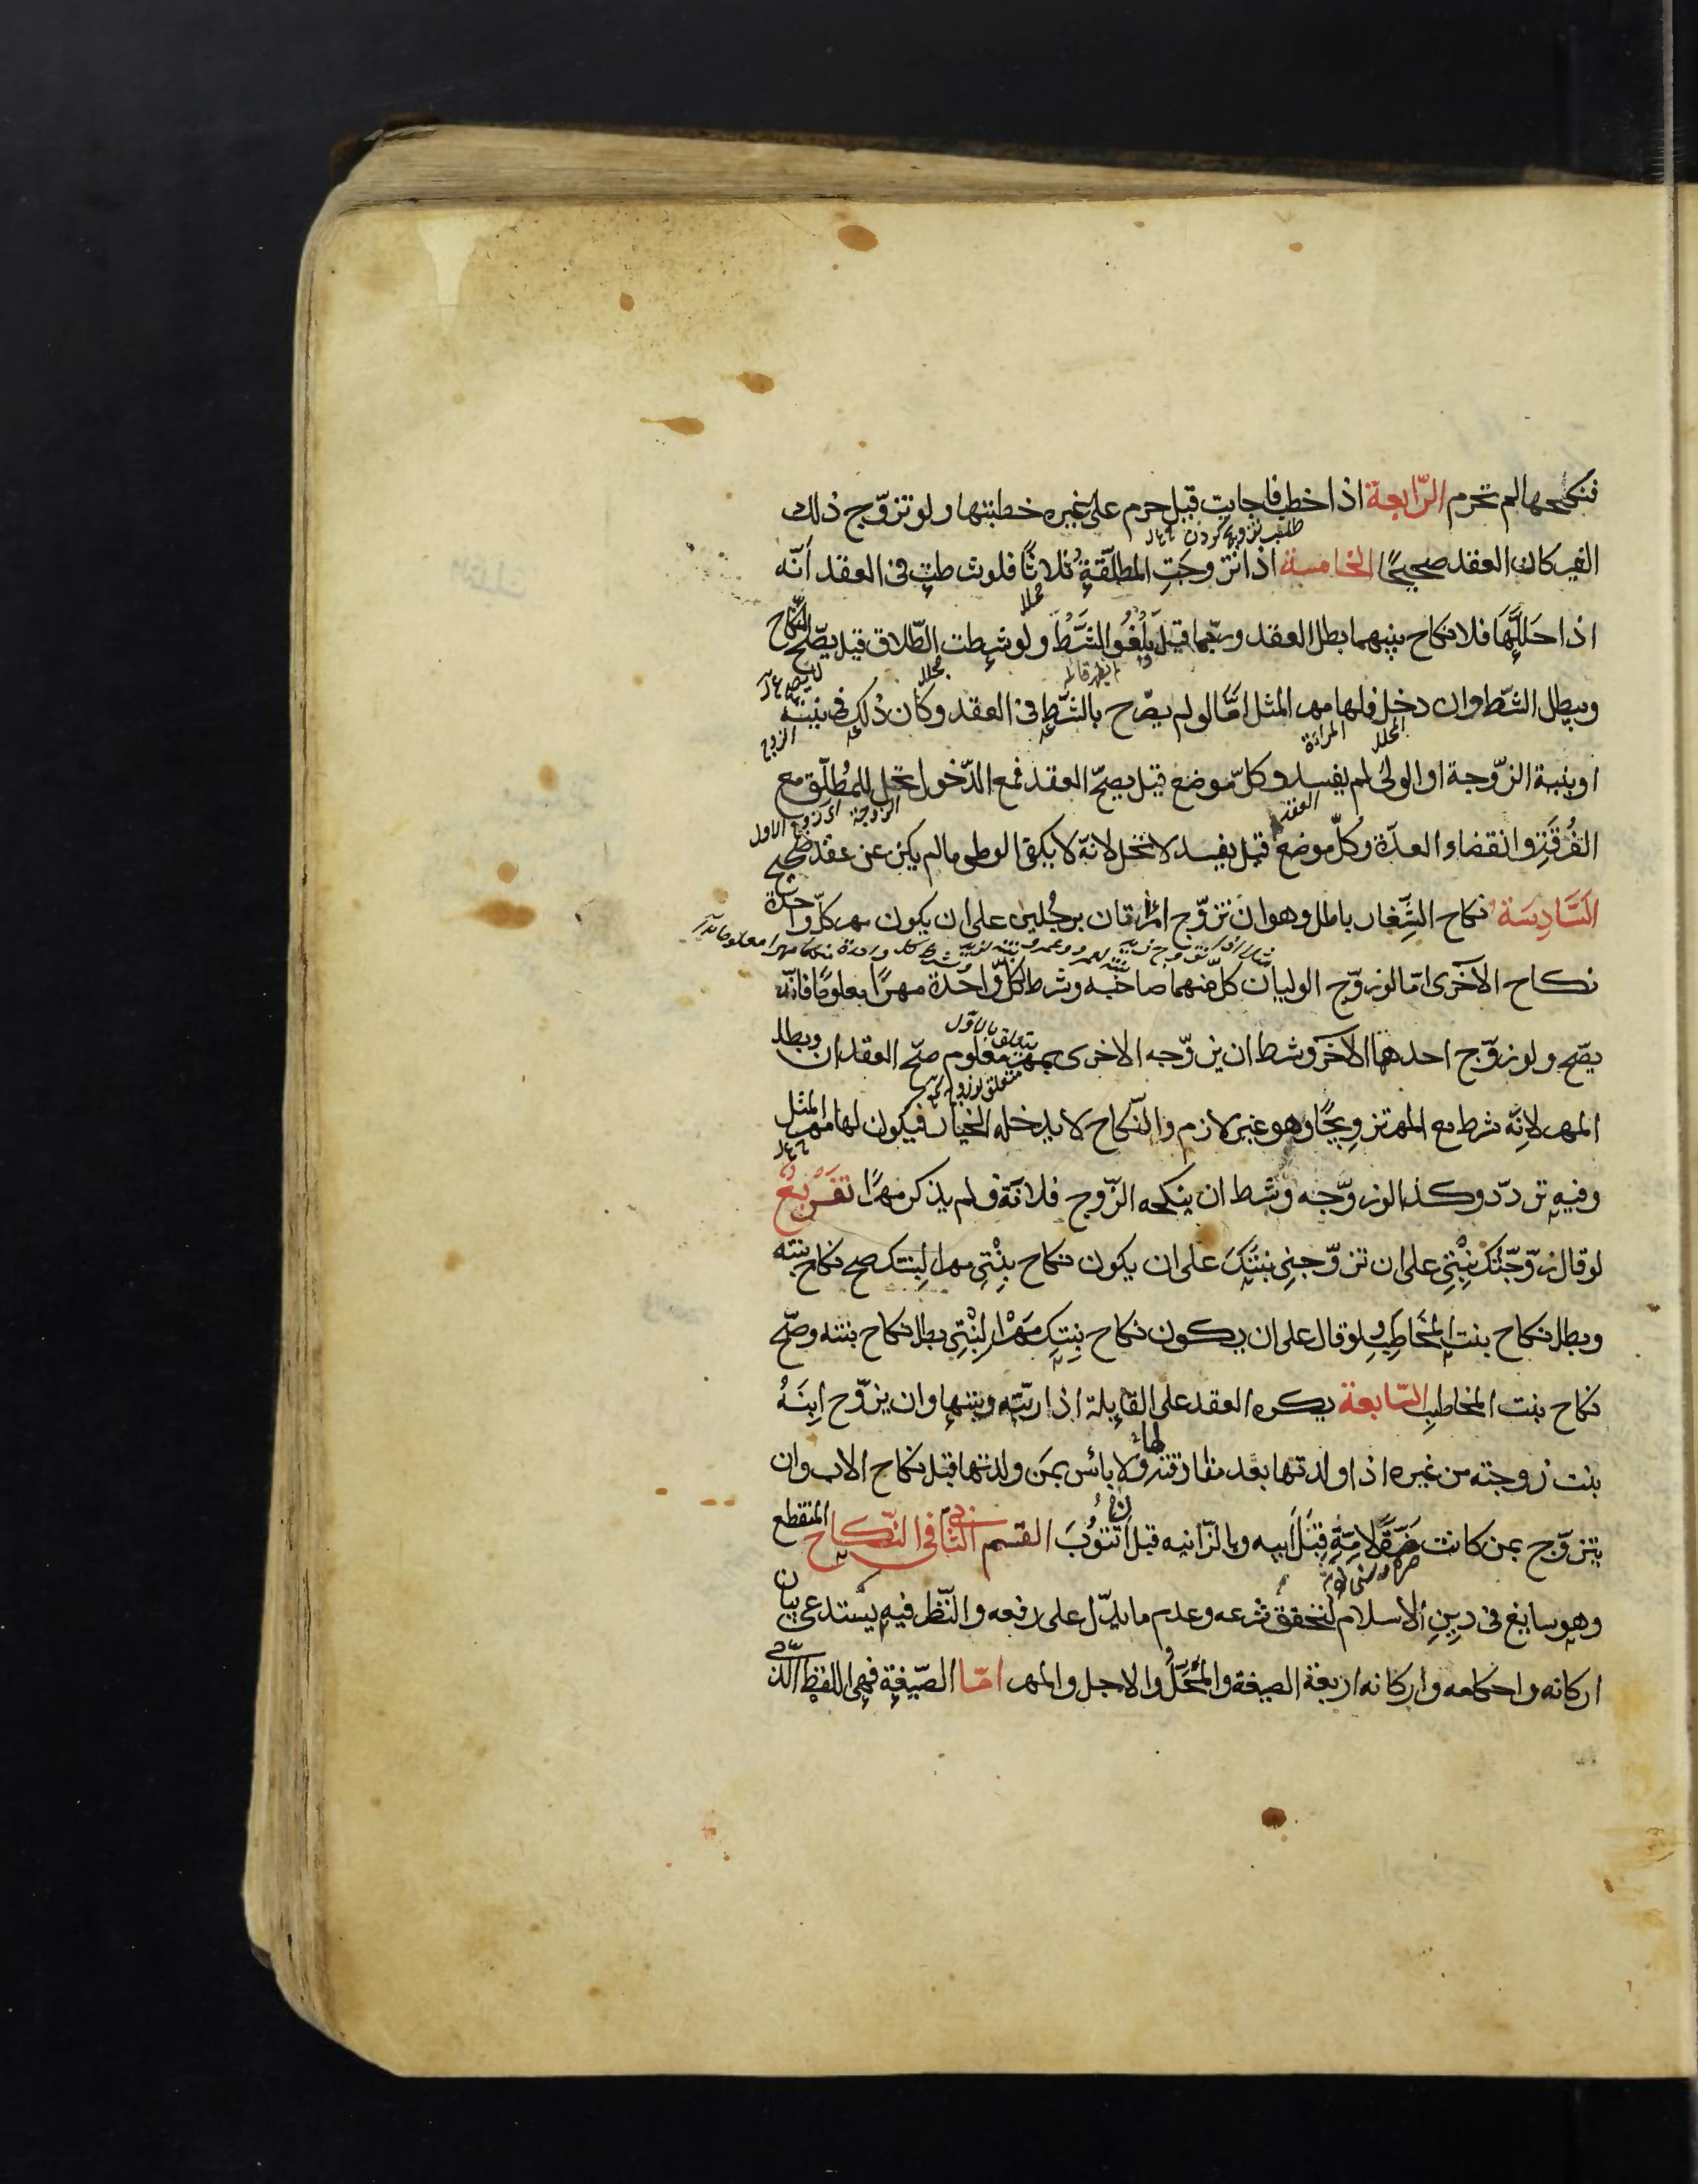 فنكحها لم تحرم الرّابعة اذا خطب فاجابت قيل حرم على غيره خطبتها ولو تزوّج ذلك
طلب تزويج كردن
الغير كان العقد صحيحًا الخامسة اذا تزوجَتِ المطلّقةُ ثلاثًا فلو شرطت في العقد أنّه
محلل
اذا حَلَّلَهَا فلا نكاح بينهما بطل العقد وربّما قيلَ يَلْغُو الشَّرْطُ ولو شرطت الطّلاق قيل يصّح النّكاح
محلل
ويبطل الشّرط وان دخل فلها مهر المثل امّا لو لم يصّرح بالشّرط في العقد وكان ذلك في نيّته
المحلل المراءة الزوج
او بنية الزّوجة او الولىّ لم يفسد وكلّ موضع قيل يصحّ العقد فمع الدّخول تحل للمُطلّق مع
العقد الزوجة اى زوج الاول
الفُرقَةِ وانقضاء العدّة وكلّ موضع قيل يفسد لا تحل لانّه لا يكفى الوطى مالم يكن عن عقد صحيح
السَّادِسَة نكاح الشِّغار باطل وهو ان تتزوّج امْرأتان برجُلين على ان يكون مهر كلّ واحدة
نكاح الاخرى امّا لو زوّج الوليان كلّ منهما صاحبه وشرط لكلّ واحدة مهرًا معلومًا فانّه
يتعلق بالاوّل
يصّح ولو زوّج احدهما الآخر وشرط ان يزوّجه الاخرى بمهر معلوم صحّ العقدان وبطل
المهر لانّه شرط مع المهر تزويجًا وهو غير لازم والنّكاح لا يدخله الخيار فيكون لها مهر المثل
وفيه تردّد وكذا لو زوّجه وشرط ان ينكحه الزّوج فلانة ولم يذكر مهرًا تفريعٌ
لو قال زوّجْتُكَ بِنْتِي على ان تزوّجنِي بنتَكَ على ان يكون نكاح بِنْتِي مهرا لِبنتك صح نكاح بنته
وبطل نكاح بنت المخَاطَبِ ولو قال على ان يكون نكاح بِنتِكَ مَهْرا لِبِنْتِي بطل نكاح بنته وصحّ
نكاح بنت المخاطب السّابعة يكره العقد على القابلة اذا ربّته وبنتها وان يزوّج ابنَهُ
بنت زوجته من غيره اذا ولدتها بعد مفارقته لها ولا باس بمَن ولدتها قبل نكاح الاب وان
يتزوّج بمن كانت ضَرَّةً لامّهِ قبلَ ابيه وبالزّانيه قبل ان تتوبَ القسم الثّانى فى النّكاح المنقطع
وهو سايغ فى دين الاسلام لتحقق شرعه وعدم ما يدلّ على رفعه والنّظر فيه يستدعى بيان
اركانه واحكامه واركانه اربعة الصيغة والمَحَلُّ والاجل والمهر امّا الصّيغة فهى اللفظ الّذى